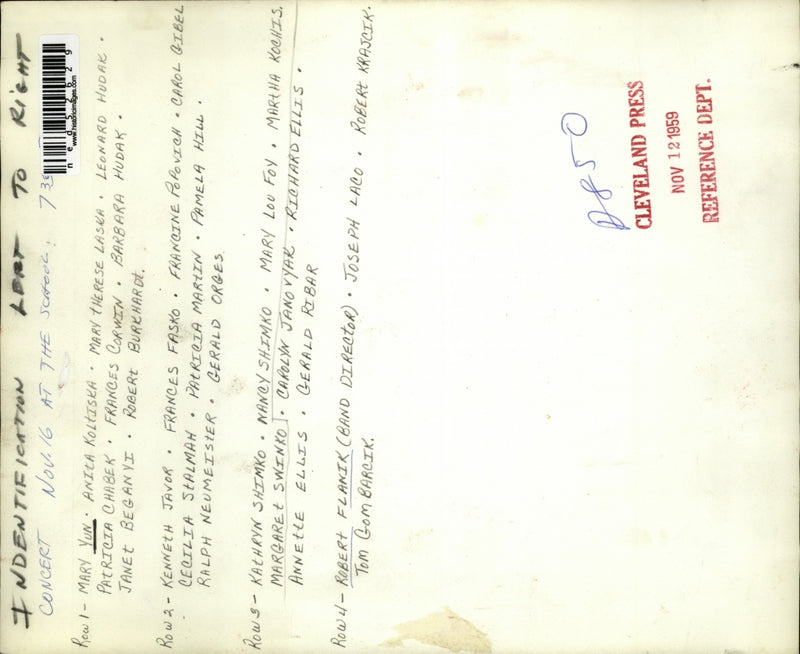 INDENTIFICATION LEFT TO RIGHT
CONCERT NOV. 16 AT THE SCHOOL. 7
Row 1 - MARY YUN · ANITA KOLTISKA · MARY THERESE LASKA · LEONARD HUDAK ·
PATRICIA CHABEK · FRANCES CORWIN · BARBARA HUDAK ·
JANET BEGANYI · ROBERT BURKHARDT.
Row 2 - KENNETH JAVOR · FRANCES FASKO · FRANCINE POPOVICH · CAROL GIBEL
CECILIA STALMAH · PATRICIA MARTIN · PAMELA HILL ·
RALPH NEUMEISTER · GERALD ORGES
Row 3 - KATHRYN SHIMKO · NANCY SHIMKO · MARY LOU FOY · MARTHA KOCHIS.
MARGARET SWINKO · CAROLYN JANOVYAK · RICHARD ELLIS ·
ANNETTE ELLIS · GERALD RIBAR
Row 4 - ROBERT FLANIK (BAND DIRECTOR) · JOSEPH LACO · ROBERT KRAJCIK.
TOM GOMBARCIK.
D850
CLEVELAND PRESS
NOV 12 1959
REFERENCE DEPT.
www.historicimages.com
ned52629